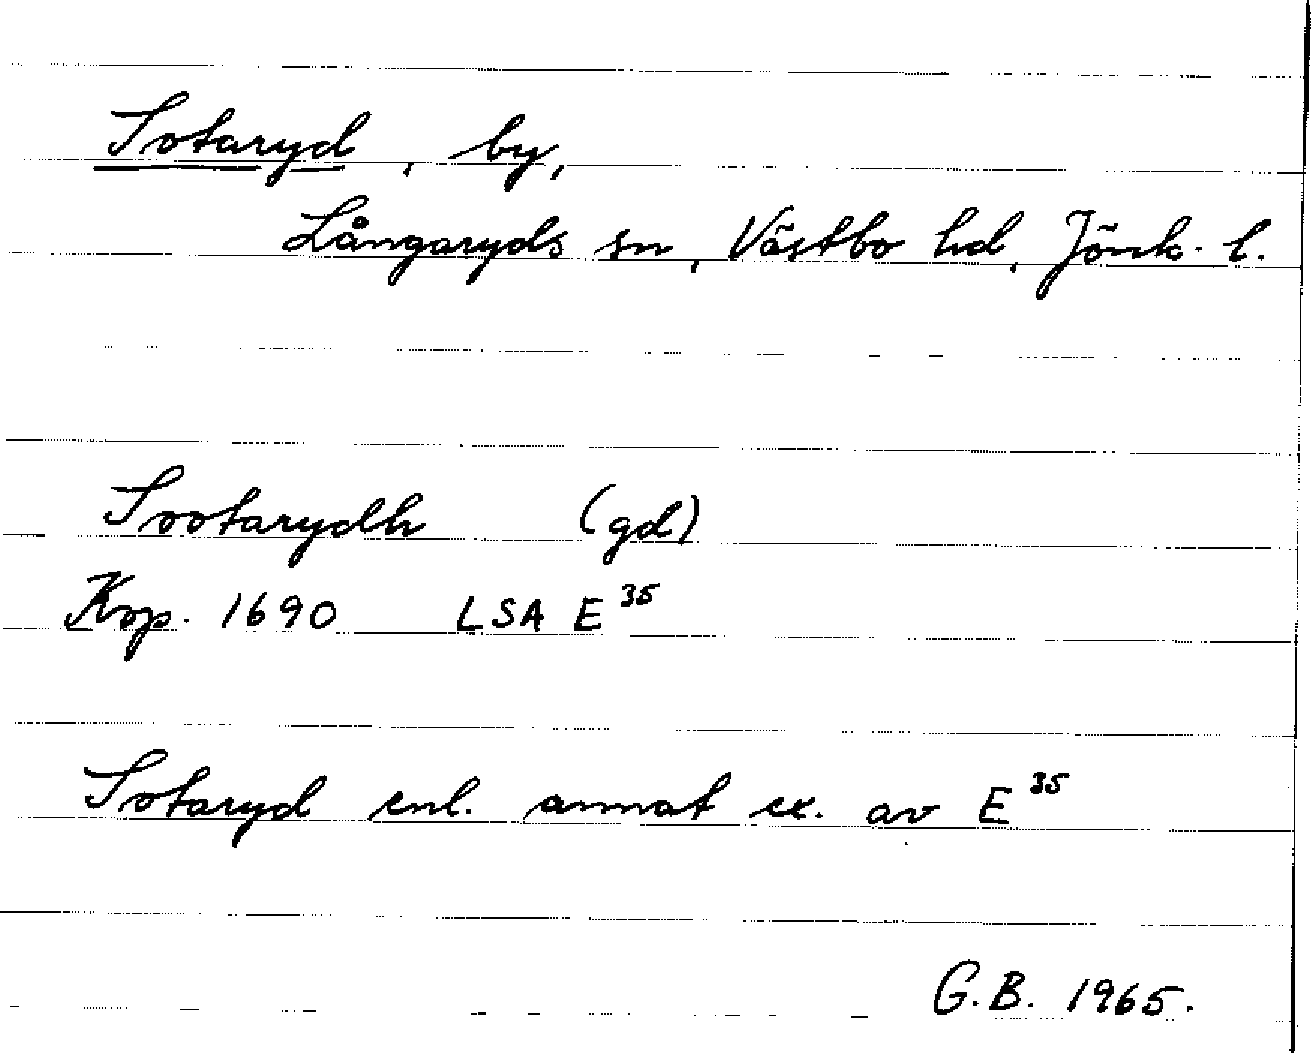 Sotaryd, by,
Långaryds sn, Västbo hd, Jönk. l.
Sootarydh (gd)
Kop. 1690 LSA E 35
Sotaryd enl. annat ex. av E 35
G.B. 1965.